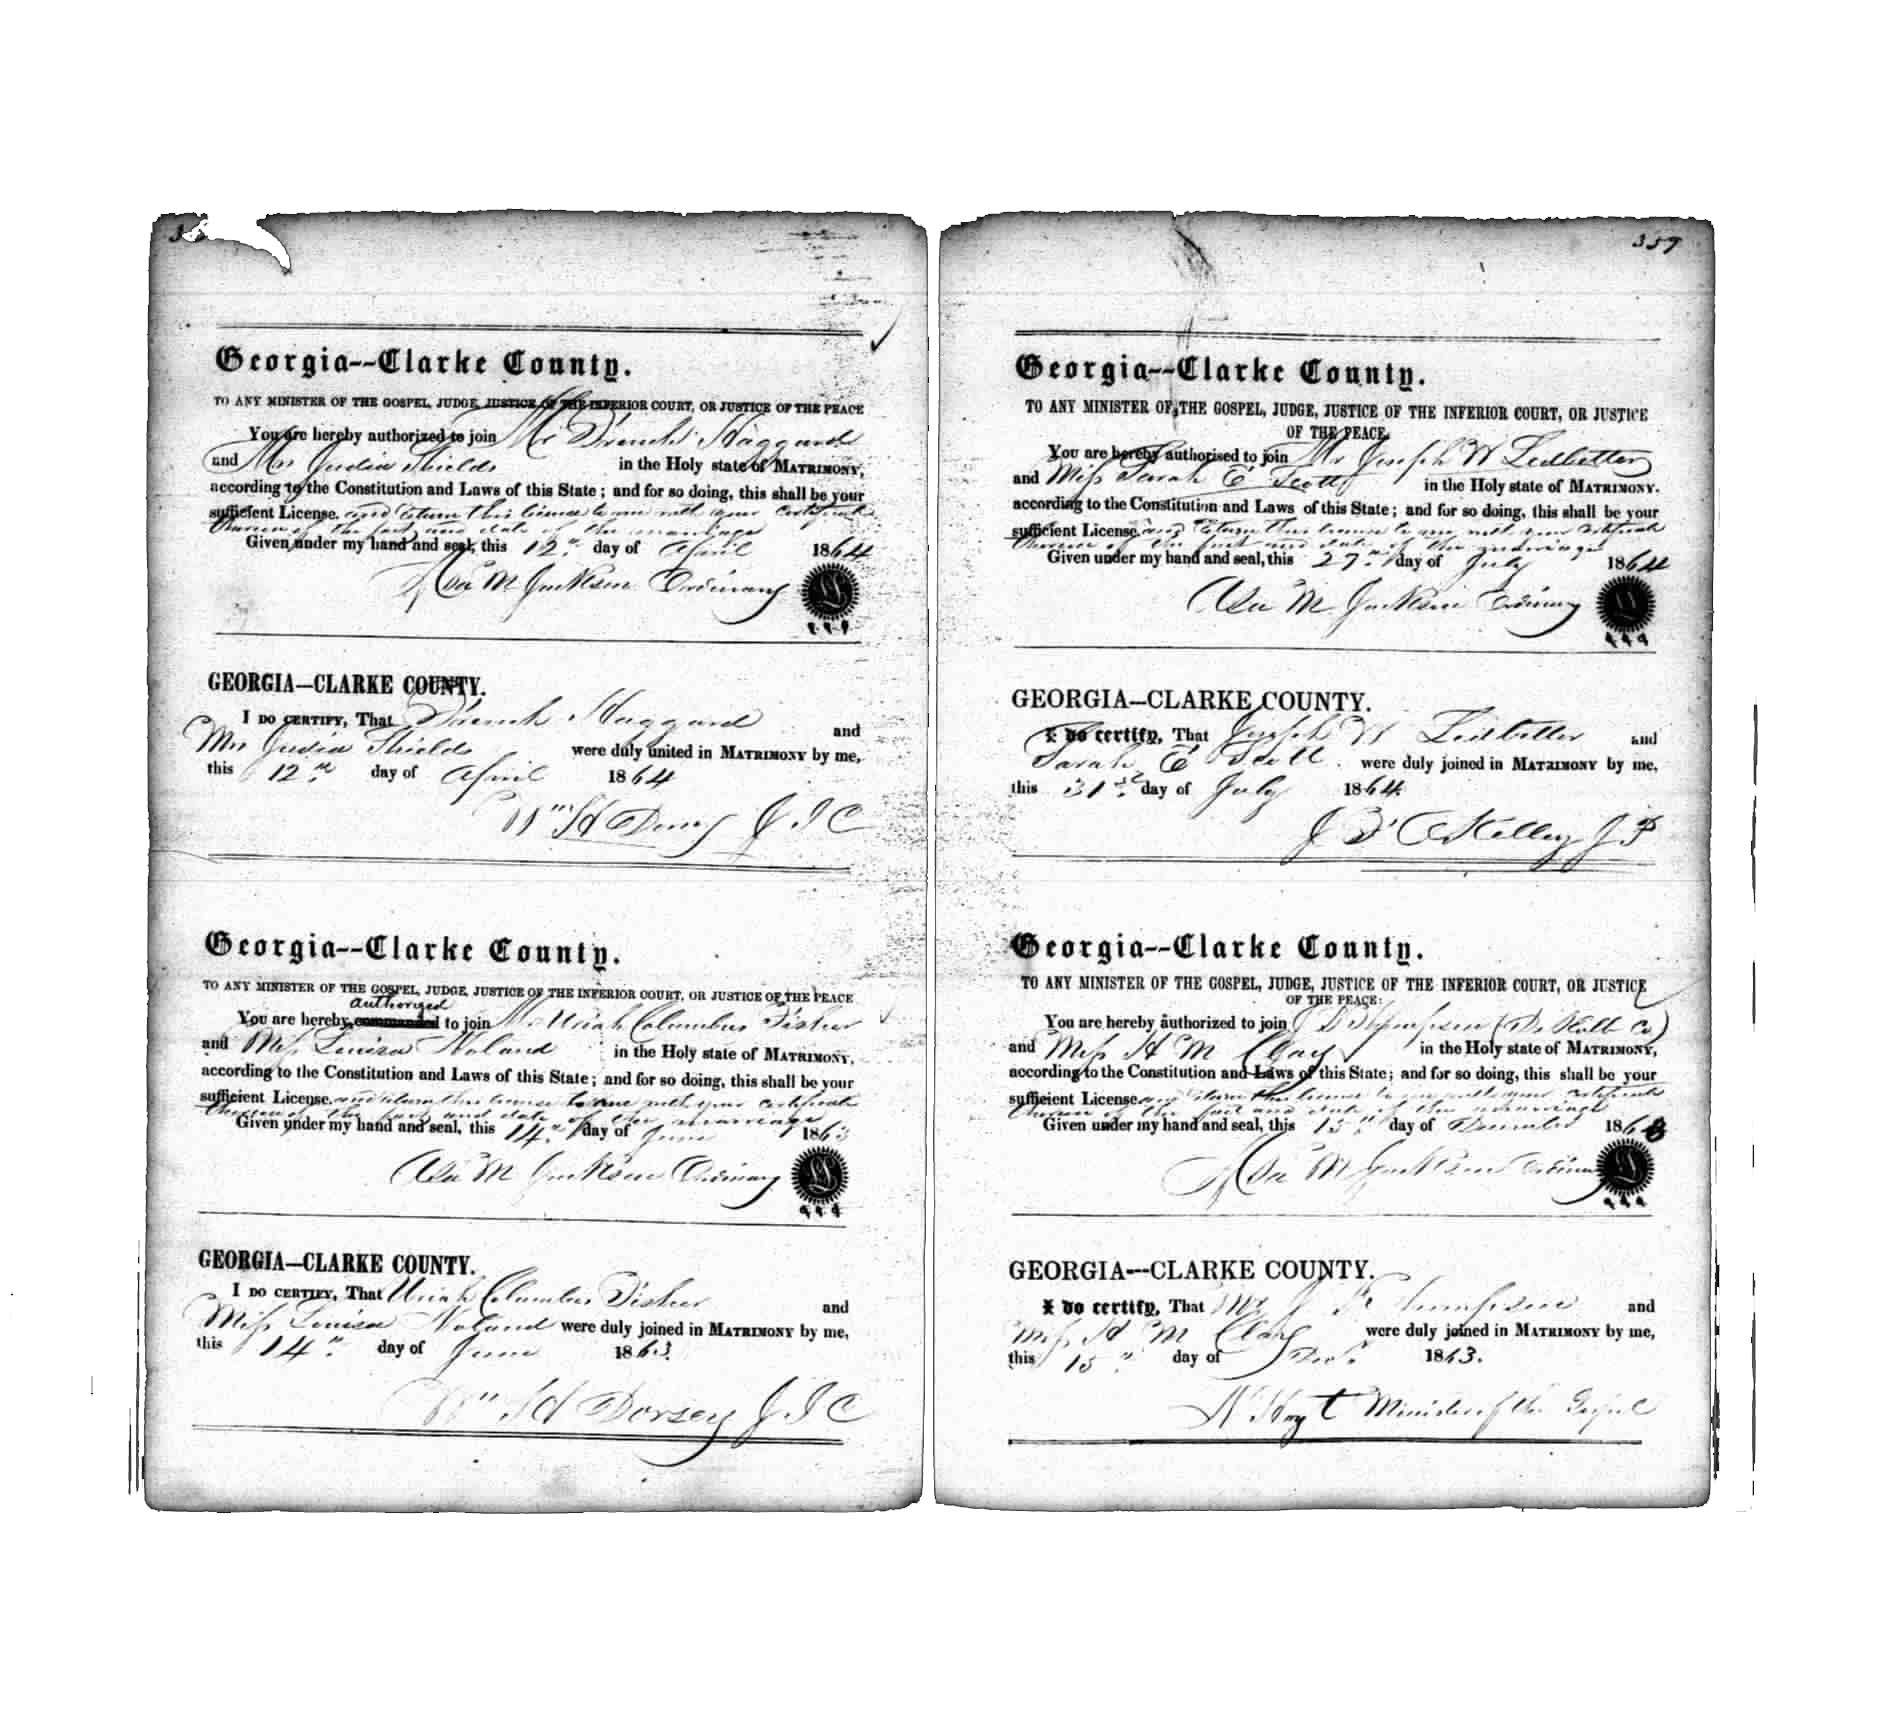 Georgia--Clarke County.
TO ANY MINISTER OF THE GOSPEL, JUDGE, JUSTICE OF THE INFERIOR COURT, OR JUSTICE OF THE PEACE
You are hereby authorized to join Mr French Haggard
and Mrs Judia Shields in the Holy state of MATRIMONY,
according to the Constitution and Laws of this State; and for so doing, this shall be your
sufficient License. and return this license to me with your certificate
thereon of the fact and date of the marriage
Given under my hand and seal, this 12th day of April 1864
Asa M Jackson Ordinary
GEORGIA—CLARKE COUNTY.
I DO CERTIFY, That French Haggard and
Mrs Judia Shields were duly united in MATRIMONY by me,
this 12th day of April 1864
Wm H Dorsey J I C
Georgia--Clarke County.
TO ANY MINISTER OF THE GOSPEL, JUDGE, JUSTICE OF THE INFERIOR COURT, OR JUSTICE OF THE PEACE
authorized
You are hereby commanded to join Mr Uriah Columbus Fisher
and Miss Louisa Noland in the Holy state of MATRIMONY,
according to the Constitution and Laws of this State; and for so doing, this shall be your
sufficient License. and return this license to me with your certificate
thereon of the fact and date of the marriage
Given under my hand and seal, this 14th day of June 1863
Asa M Jackson Ordinary
GEORGIA—CLARKE COUNTY.
I DO CERTIFY, That Uriah Columbus Fisher and
Miss Louisa Noland were duly joined in MATRIMONY by me,
this 14th day of June 1863.
Wm H Dorsey J I C
359
Georgia--Clarke County.
TO ANY MINISTER OF THE GOSPEL, JUDGE, JUSTICE OF THE INFERIOR COURT, OR JUSTICE
OF THE PEACE,
You are hereby authorised to join Mr Joseph W Ledbetter
and Miss Sarah E Scott in the Holy state of MATRIMONY.
according to the Constitution and Laws of this State; and for so doing, this shall be your
sufficient License. and return this license to me with your certificate
thereon of the fact and date of the marriage
Given under my hand and seal, this 27th day of July 1864
Asa M Jackson Ordinary
GEORGIA—CLARKE COUNTY.
I do certify, That Joseph W Ledbetter and
Sarah E Scott were duly joined in MATRIMONY by me,
this 31st day of July 1864.
J F OKelley J P
Georgia--Clarke County.
TO ANY MINISTER OF THE GOSPEL, JUDGE, JUSTICE OF THE INFERIOR COURT, OR JUSTICE
OF THE PEACE:
You are hereby authorized to join J D Thompson (De Kalb Co)
and Miss H M Clay in the Holy state of MATRIMONY,
according to the Constitution and Laws of this State; and for so doing, this shall be your
sufficient License. and return this license to me with your certificate
thereon of the fact and date of the marriage
Given under my hand and seal, this 15th day of December 1863
Asa M Jackson Ordinary
GEORGIA—CLARKE COUNTY.
I do certify, That Mr J Thompson and
Miss H M Clay were duly joined in MATRIMONY by me,
this 15th day of Dec. 1863.
N Hoyt Minister of the Gospel